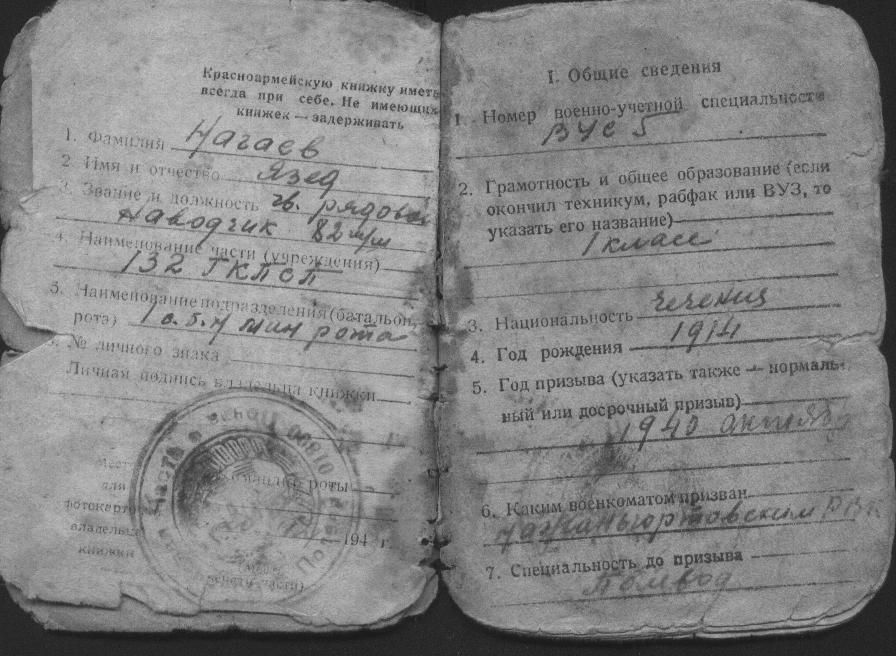 Красноармейскую книжку иметь
всегда при себе. Не имеющих
книжек — задерживать
1. Фамилия Нагаев
2. Имя и отчество Язед
3. Звание и должность гв. рядовой
Наводчик 82 м/м
4. Наименование части (учреждения)
132 ГКПСП
5. Наименование подразделения (батальон,
рота) 1 с.б. мин рота
№ личного знака
Личная подпись владельца книжки
Командир роты
Место
для
фотокарточ
владельца
книжки
194 г.
I. Общие сведения
1. Номер военно-учетной специальности
ВУС 5
2. Грамотность и общее образование (если
окончил техникум, рабфак или ВУЗ, то
указать его название)
1 класс
3. Национальность
4. Год рождения 1914
5. Год призыва (указать также — нормаль-
ный или досрочный призыв)
1940 октябр
6. Каким военкоматом призван
РВК
7. Специальность до призыва